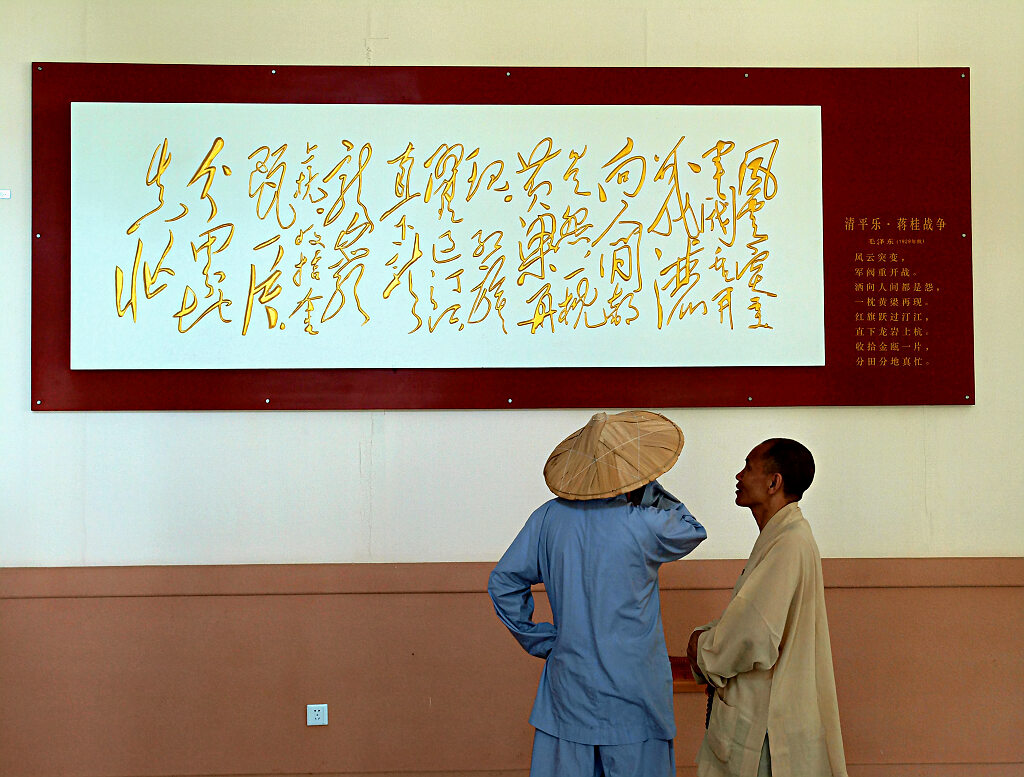 風雲突变
軍阀重开
战洒
向人间都
是怨一枕
黄粱再
现。红旗
躍过汀江
直下龙
上杭。收拾金
瓯一片。
分田分地
真忙
清平乐·蒋桂战争
毛泽东(1929年秋)
风云突变，
军阀重开战。
洒向人间都是怨，
一枕黄粱再现。
红旗跃过汀江，
直下龙岩上杭。
收拾金瓯一片，
分田分地真忙。